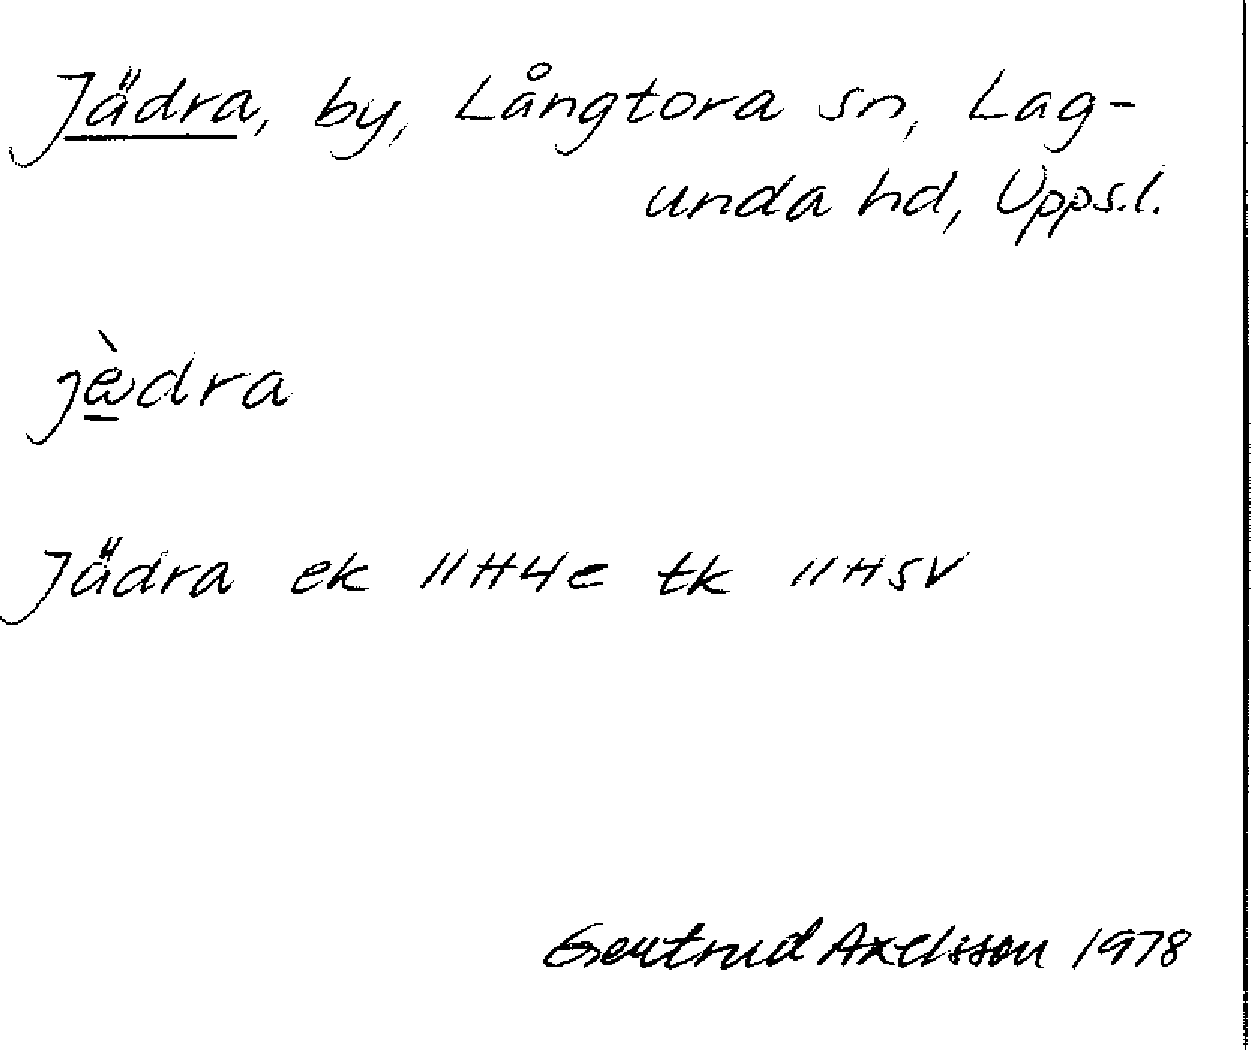 Jädra, by, Långtora sn, Lag-
unda hd, Upps.l.
jè̱dra
Jädra ek 11H4e tk 11H SV
Gertrud Axelsson 1978